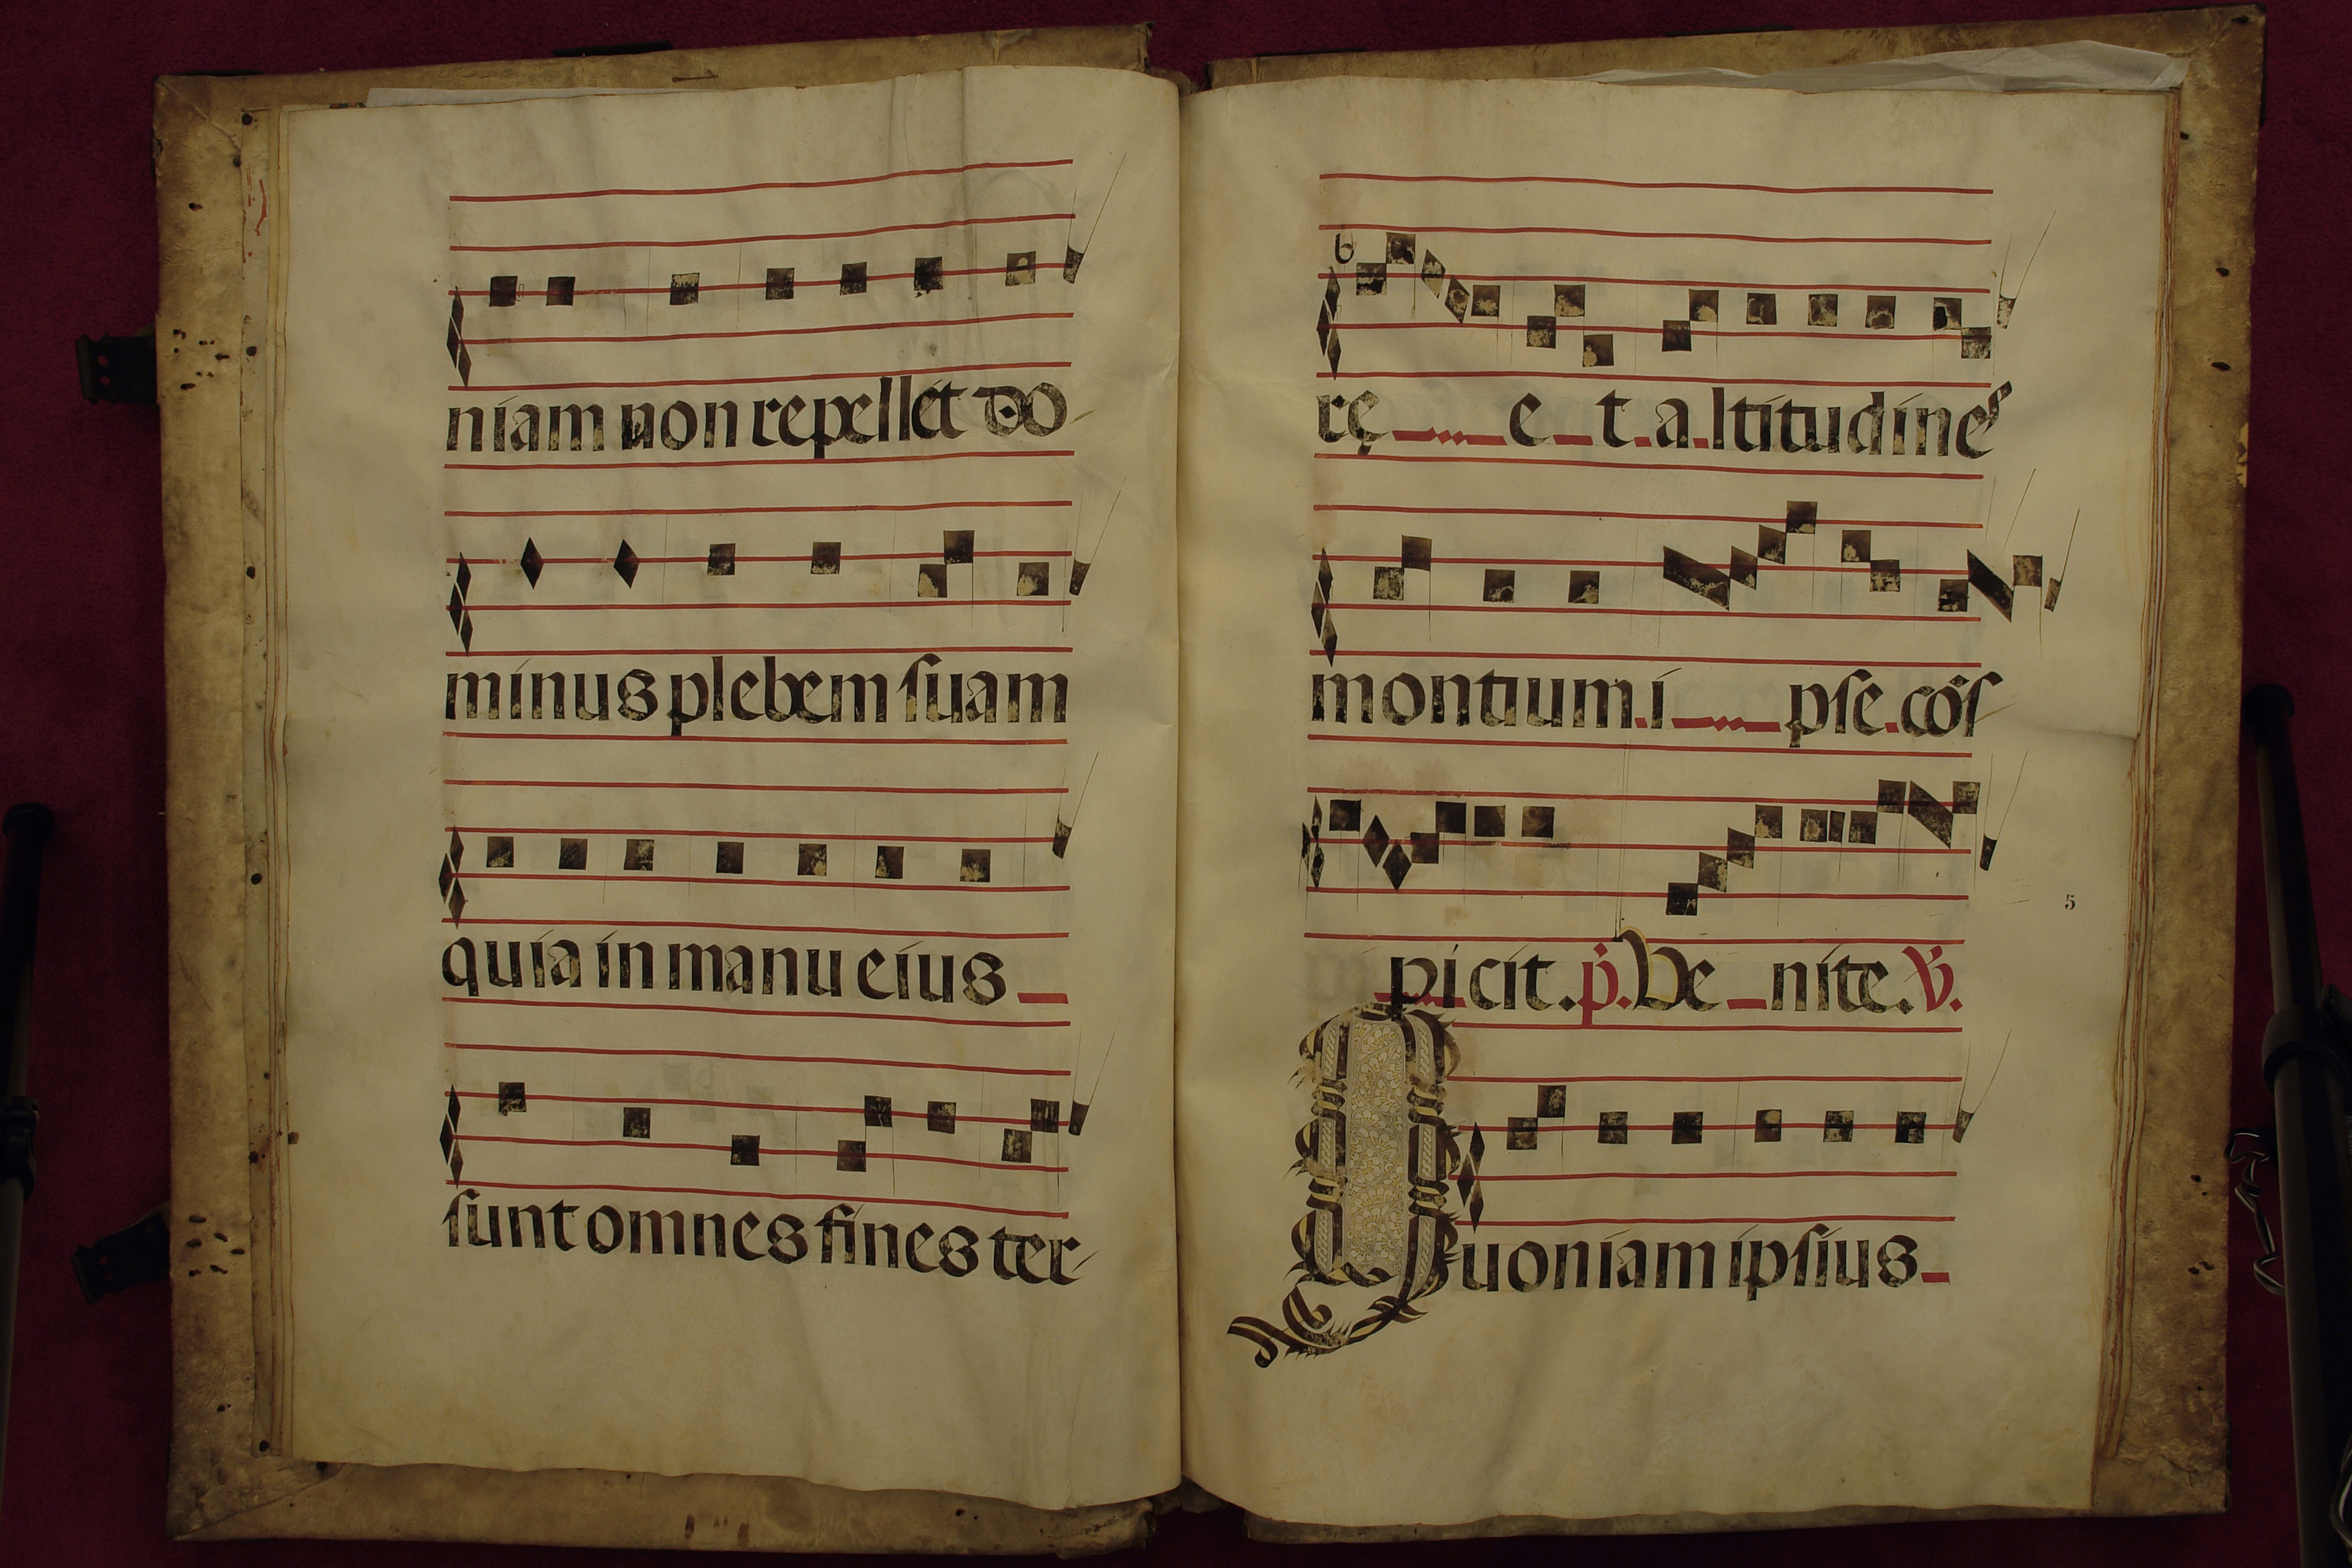 niam non repellet Do
minus plebem suam
quia in manu eius
sunt omnes fines ter-
rę e t altitudines
montium i pse. cōs
picit. p. Ve nite. V.
Quoniam ipsius
5